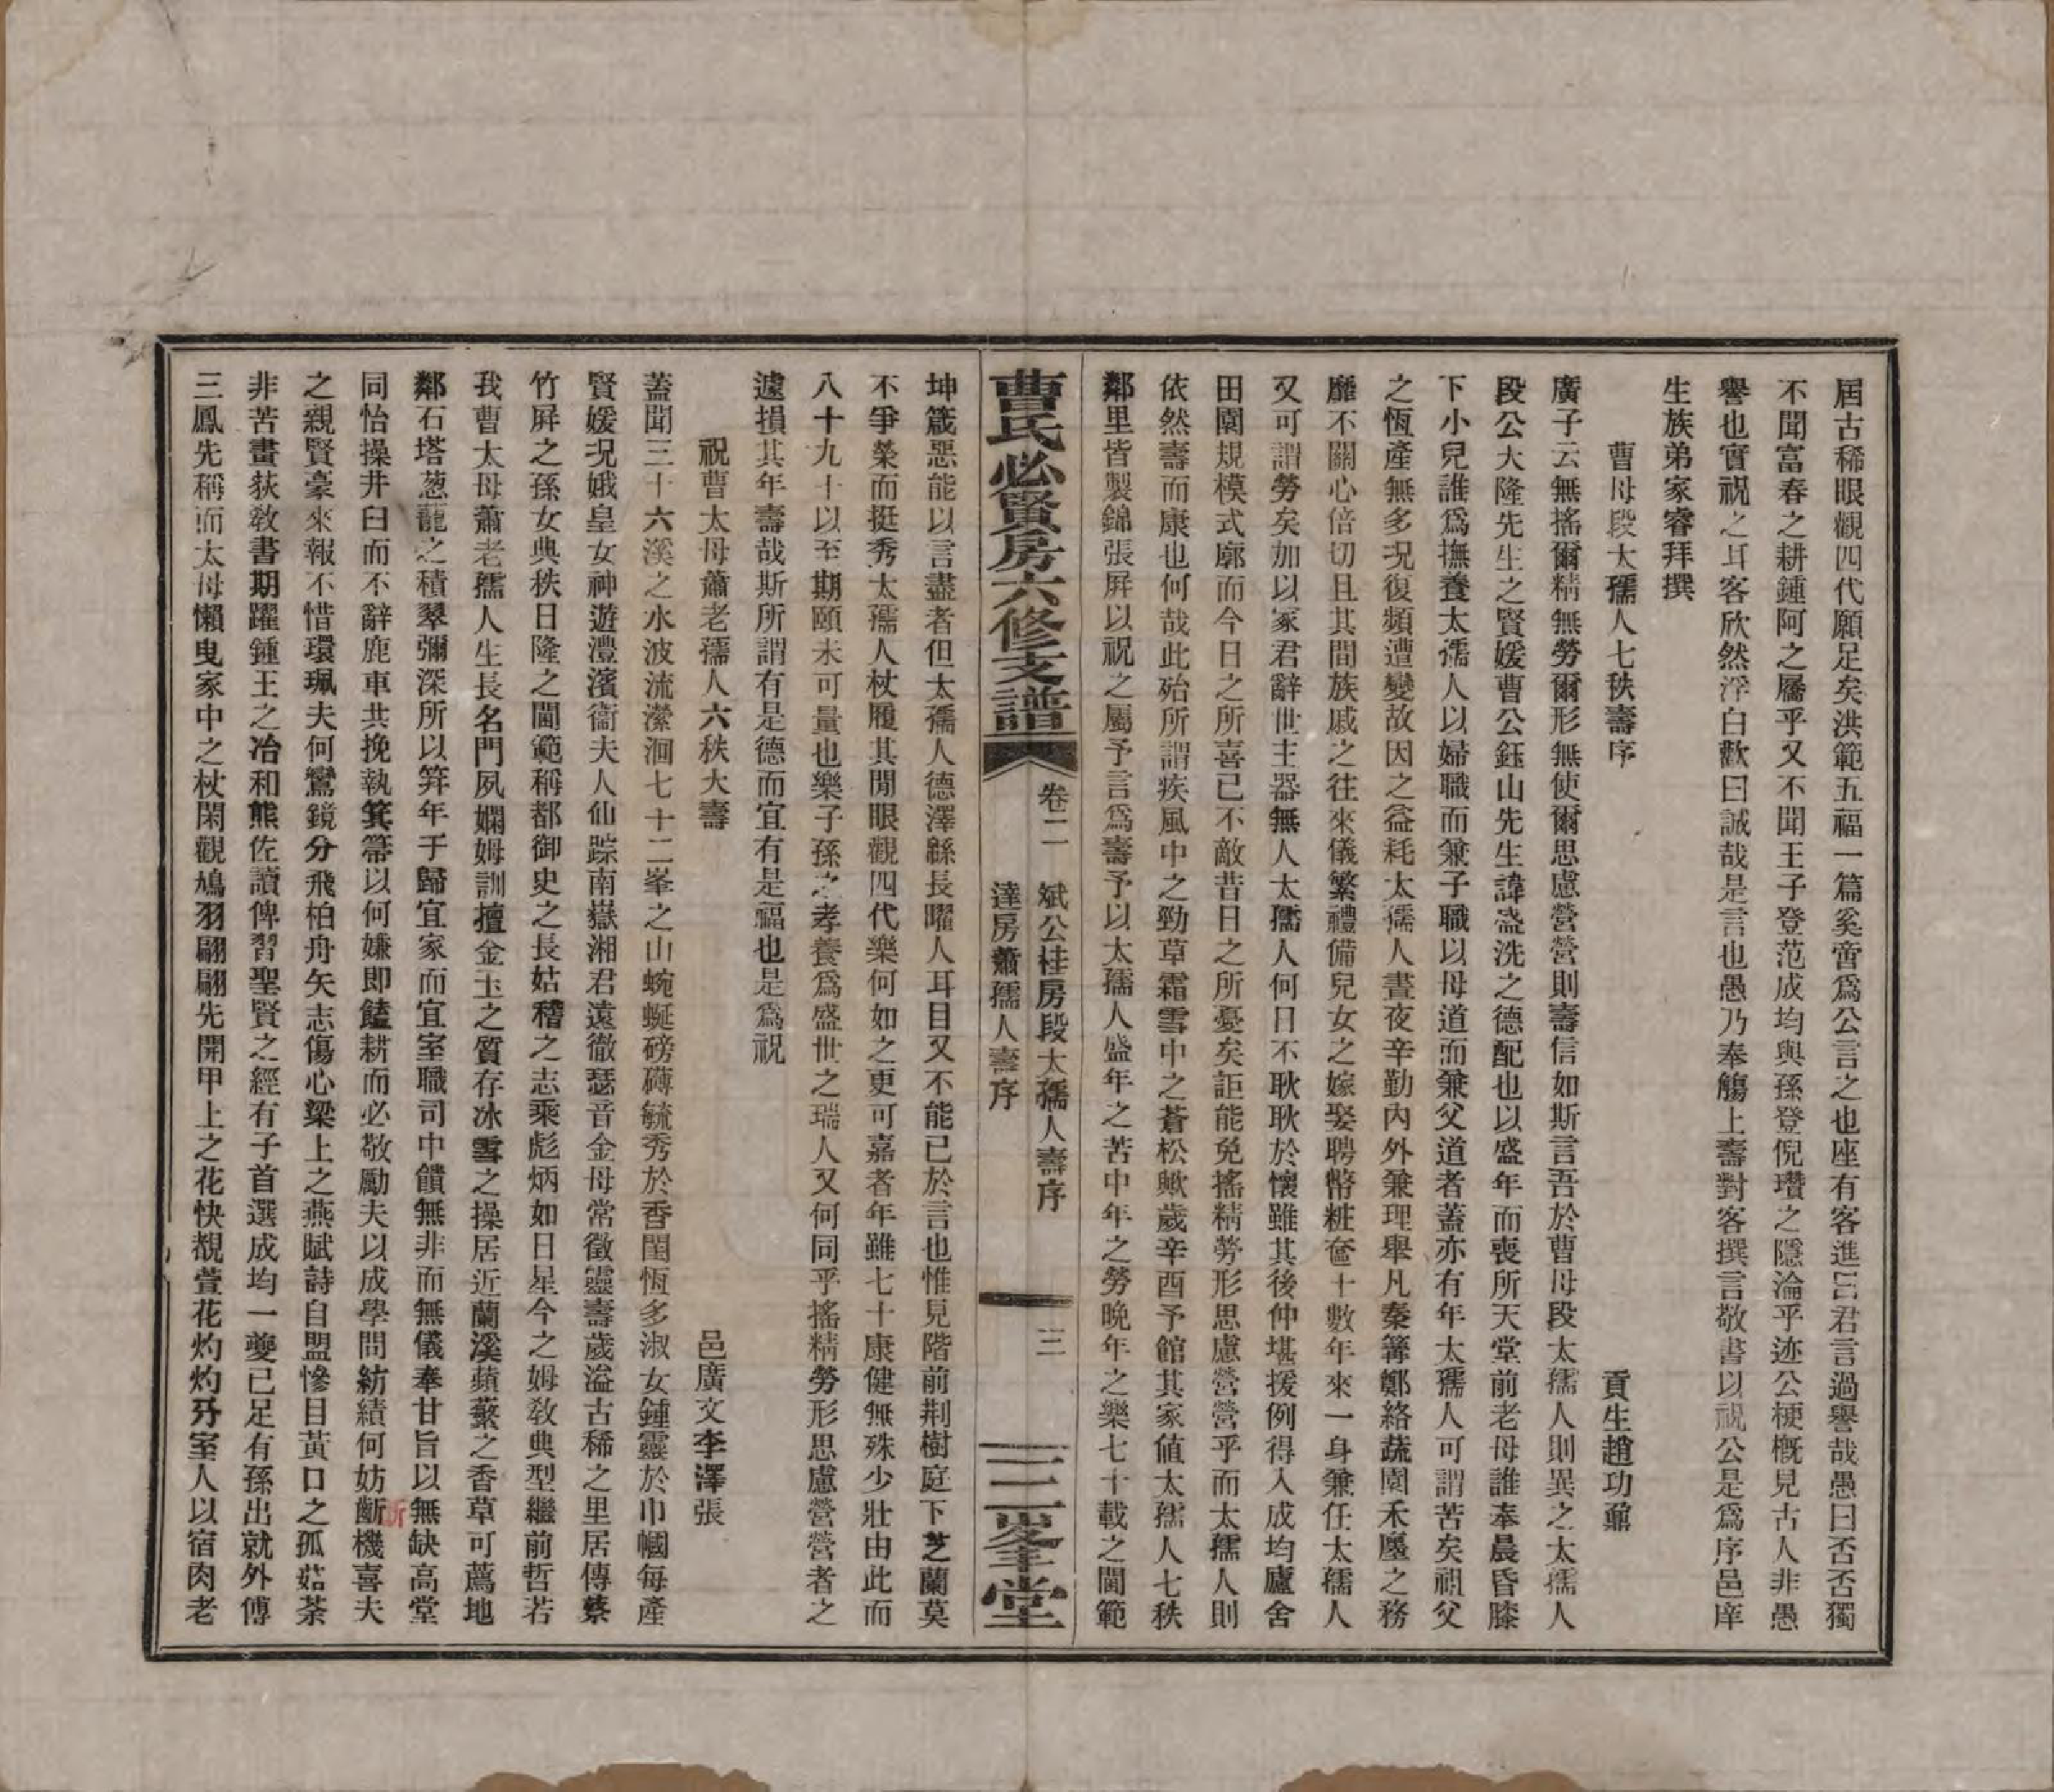 屆古稀眼觀四代願足矣洪範五福一篇奚啻爲公言之也座有客進曰君言過譽哉愚曰否否獨
不聞富春之耕鍾阿之屩乎又不聞王子登范成均與孫登倪瓚之隱淪乎迹公梗概見古人非愚
譽也實祝之耳客欣然浮白歡曰誠哉是言也愚乃奉觴上壽對客撰言敬書以祝公是爲序邑庠
生族弟家睿拜撰
曹母段太孺人七秩壽序
貢生趙功鼐
廣子云無搖爾精無勞爾形無使爾思慮營營則壽信如斯言吾於曹母段太孺人則異之太孺人
段公大隆先生之賢媛曹公鈺山先生諱盏洗之德配也以盛年而喪所天堂前老母誰奉晨昏膝
下小兒誰爲撫養太孺人以婦職而兼子職以母道而兼父道者蓋亦有年太孺人可謂苦矣祖父
之恆產無多況復頻遭變故因之益耗太孺人晝夜辛勤內外兼理舉凡秦篝鄭絡蔬園禾廛之務
靡不關心倍切且其間族戚之往來儀繁禮備兒女之嫁娶聘幣粧奩十數年來一身兼任太孺人
又可謂勞矣加以冢君辭世主器無人太孺人何日不耿耿於懷雖其後仲堪援例得入成均廬舍
田園規模式廓而今日之所喜已不敵昔日之所憂矣詎能免搖精勞形思慮營營乎而太孺人則
依然壽而康也何哉此殆所謂疾風中之勁草霜雪中之蒼松歟歲辛酉予館其家値太孺人七秩
鄰里皆製錦張屏以祝之屬予言爲壽予以太孺人盛年之苦中年之勞晚年之樂七十載之閫範
曹氏必賢房六修支譜
卷二
斌公桂房段太孺人壽序
達房蕭孺人壽序
三
三峯堂
坤箴惡能以言盡者但太孺人德澤緜長曜人耳目又不能已於言也惟見階前荆樹庭下芝蘭莫
不爭榮而挺秀太孺人杖履其閒眼觀四代樂何如之更可嘉者年雖七十康健無殊少壯由此而
八十九十以至期頤未可量也樂子孫之孝養爲盛世之瑞人又何同乎搖精勞形思慮營營者之
遽損其年壽哉斯所謂有是德而宜有是福也是爲祝
祝曹太母蕭老孺人六秩大壽
邑廣文李澤張
蓋聞三十六溪之水波流瀠洄七十二峯之山蜿蜒磅礡毓秀於香閨恆多淑女鍾靈於巾幗每產
賢媛況娥皇女神遊澧濱衞夫人仙踪南嶽湘君遠徹瑟音金母常徵靈壽歲溢古稀之里居傳蔡
竹屏之孫女典秩日隆之閫範稱都御史之長姑稽之志乘彪炳如日星今之姆敎典型繼前哲若
我曹太母蕭老孺人生長名門夙嫻姆訓擅金玉之質存冰雪之操居近蘭溪蘋蘩之香草可薦地
鄰石塔葱蘢之積翠彌深所以笄年于歸宜家而宜室職司中饋無非而無儀奉甘旨以無缺高堂
同怡操井臼而不辭鹿車共挽執箕箒以何嫌即饁耕而必敬勵夫以成學問紡績何妨斷機喜夫
之親賢豪來報不惜環珮夫何鸞鏡分飛柏舟矢志傷心梁上之燕賦詩自盟慘目黃口之孤茹荼
非苦畫荻敎書期躍鍾王之冶和熊佐讀俾習聖賢之經有子首選成均一夔已足有孫出就外傅
三鳳先稱而太母懶曳家中之杖閑觀鳩羽翩翩先開甲上之花快覩萱花灼灼孖室人以宿肉老